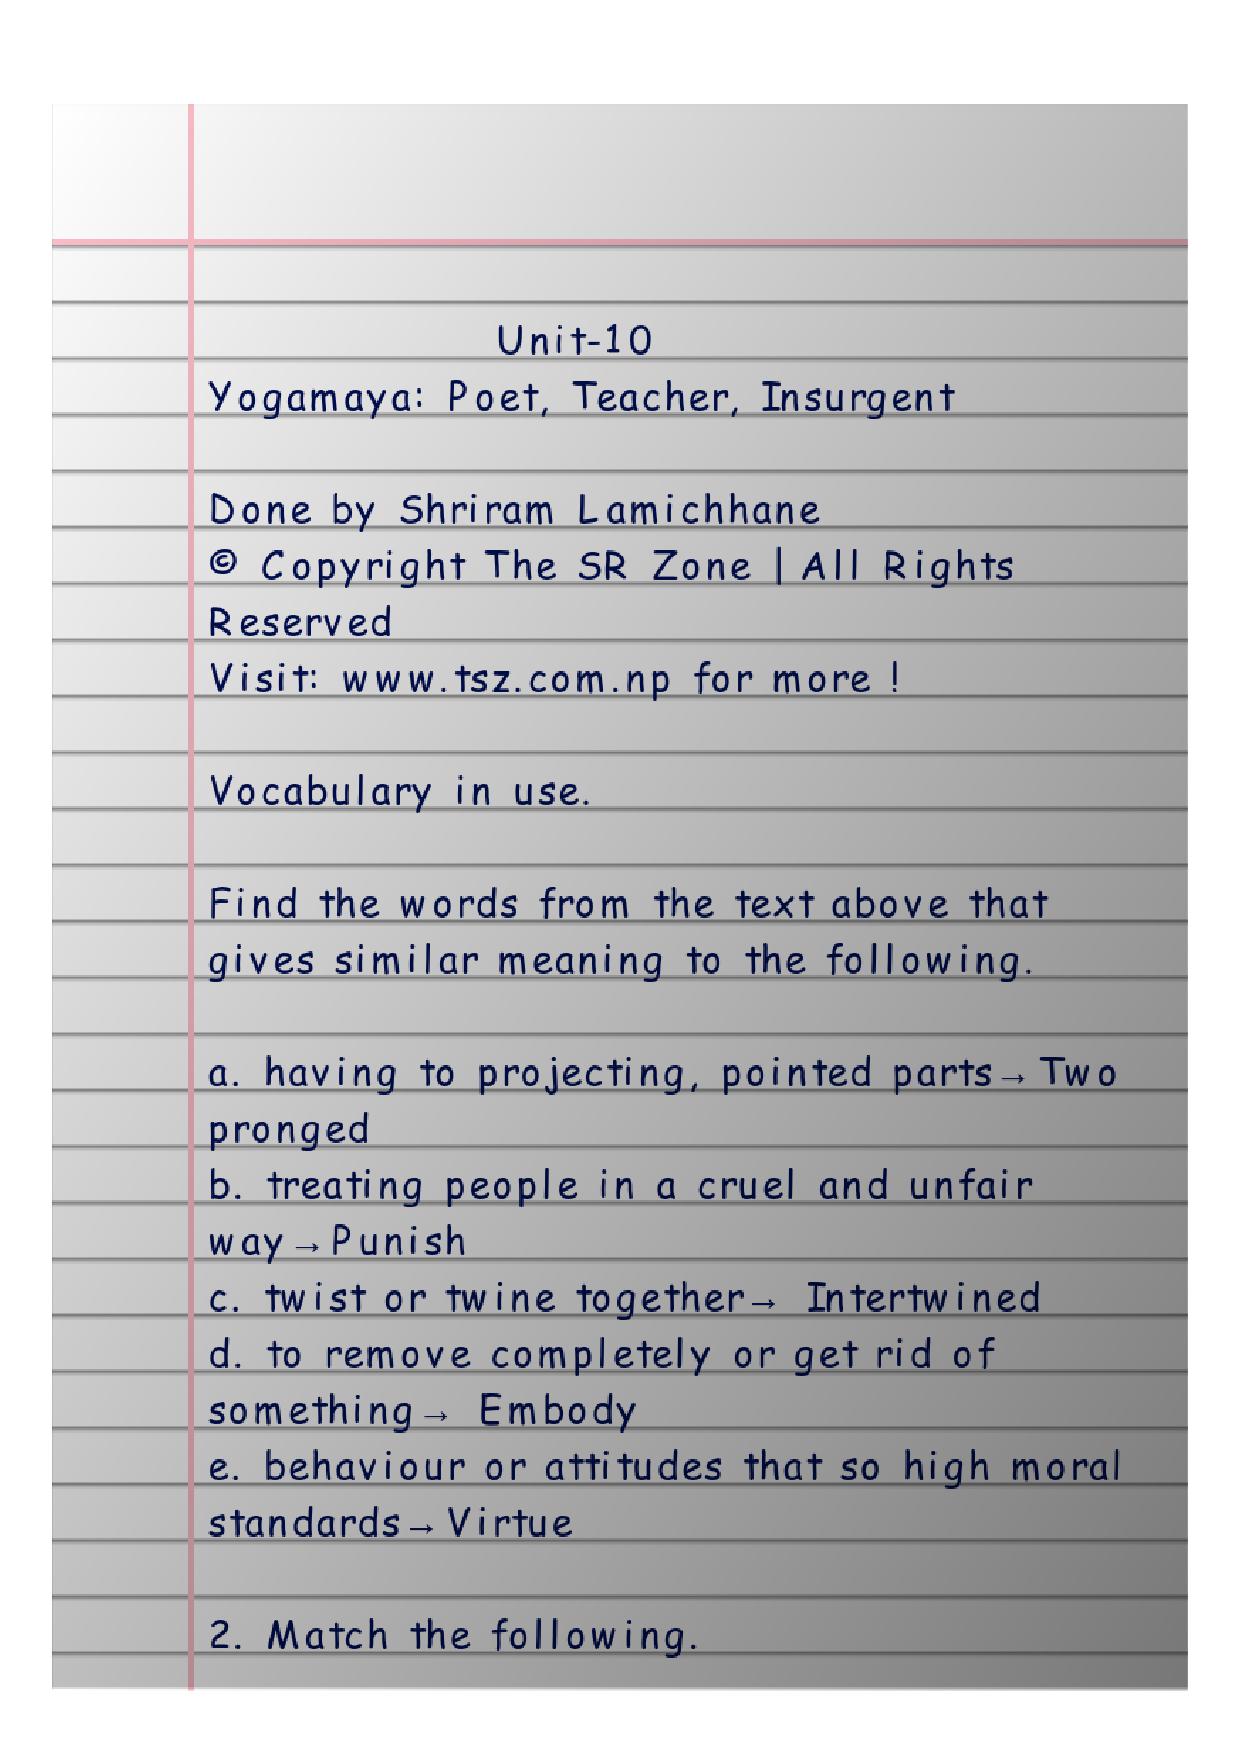 Unit-10
Yogamaya: Poet, Teacher, Insurgent
Done by Shriram Lamichhane
© Copyright The SR Zone | All Rights
Reserved
Visit: www.tsz.com.np for more !
Vocabulary in use.
Find the words from the text above that
gives similar meaning to the following.
a. having to projecting, pointed parts→ Two
pronged
b. treating people in a cruel and unfair
way→Punish
c. twist or twine together→ Intertwined
d. to remove completely or get rid of
something→ Embody
e. behaviour or attitudes that so high moral
standards→Virtue
2. Match the following.